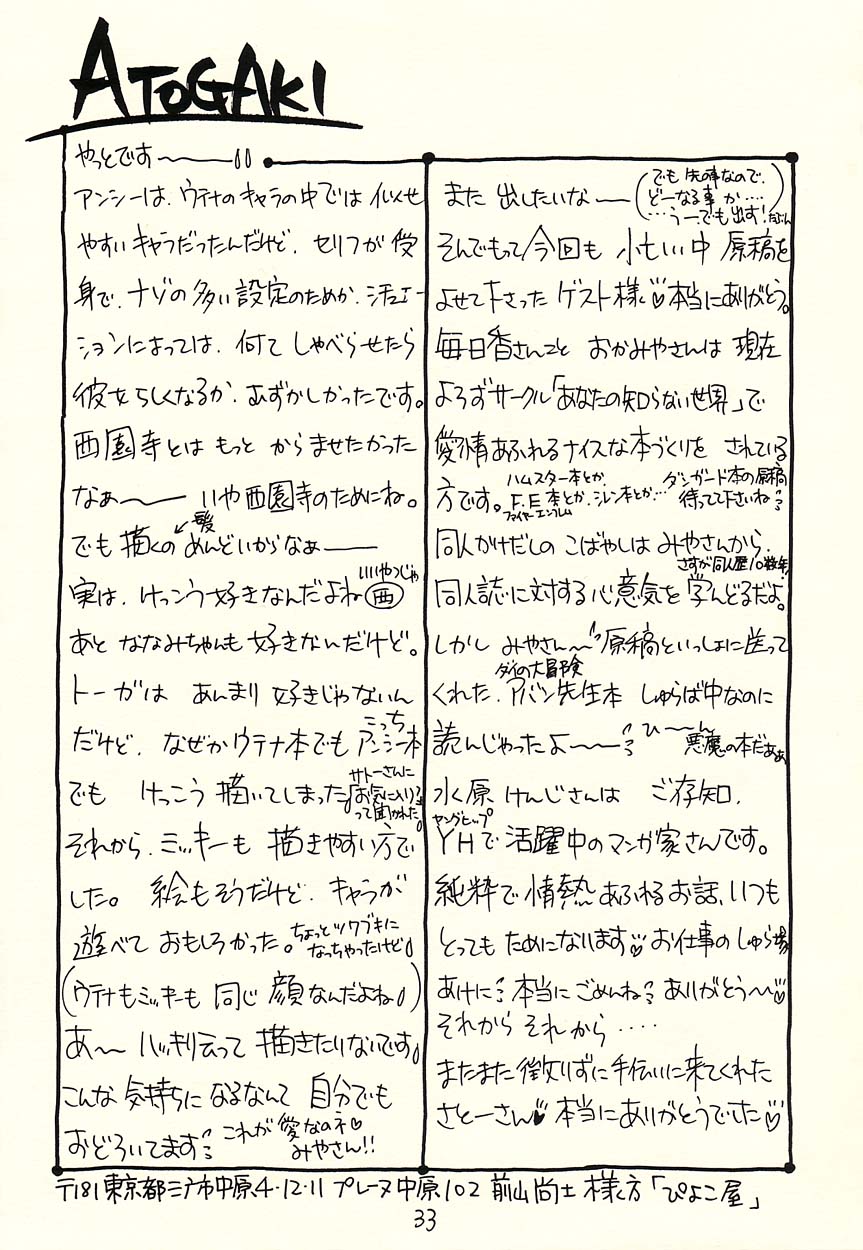 ATOGAKI
やっとです〜〜
アンシーは、ウテナのキャラの中では イメせ
やすいキャラだったんだけど、セリフが 受
身で、ナゾの多い設定のためか、シチュエー
ションによっては、何て しゃべらせたら
彼女らしくなるか、むずかしかったです。
西園寺とは もっと からませたかった
なぁ〜〜 いや西園寺のためにね。
髪
でも 描くの めんどいからなぁ――
いいやつじゃ
実は、けっこう好きなんだよね 西
あと ななみちゃんも 好きなんだけど。
トーガは あんまり 好きじゃないん
こっち
だけど、なぜかウテナ本でも アンシー本
でも けっこう 描いてしまった
サトーさんに
お気に入り?
って聞かれた。
それから、ミッキーも 描きやすい方で
した。 絵もそうだけど、キャラが
遊べて おもしろかった。
ちょっとツワブキに
なっちゃったけど
(ウテナもミッキーも 同じ 顔なんだよね)
あ〜 ハッキリ云って 描きたりないです
こんな 気持ちに なるなんて 自分でも
おどろいてます
これが 愛なのネ♡
みやさん!!
また 出したいな〜
(でも 先の事なので、
どーなる事 か‥‥
‥‥う――でも出す!たぶん)
そんでもって 今回も 忙しい中 原稿を
よせて下さった ゲスト様♡ 本当にありがとう。
毎日香さんこと おかみやさんは 現在
よろずサークル「あなたの知らない世界」で
愛情あふれるナイスな本づくりを されている
方です。
ハムスター本とか、
F.E本とか、シレン本とか‥‥
ファイヤーエンブレム
ダンガード本の原稿
待ってて下さいね
同人かけだしの こばやしは みやさんから、
さすが同人歴10数年!
同人誌に対する 心意気を 学んどるだよ。
しかし みやさん〜 原稿といっしょに送って
ダイの大冒険
くれた、アバン先生本 しゅらば中なのに
読んじゃったよ〜〜
ひ〜〜ん
悪魔の本だぁぁ
水原 けんじさんは ご存知、
ヤングヒップ
YHで 活躍中の マンガ家さんです。
純粋で 情熱 あふれる お話、いつも
とっても ためになります♡ お仕事の しゅら場
あけに 本当に ごめんね ありがとう〜♡
それから それから ‥‥
またまた 懲りずに 手伝いに来てくれた
さとーさん♥ 本当にありがとうでした♡
〒181 東京都三鷹市中原4-12-11 プレーヌ中原102 前山尚士 様方「ぴよこ屋」
33